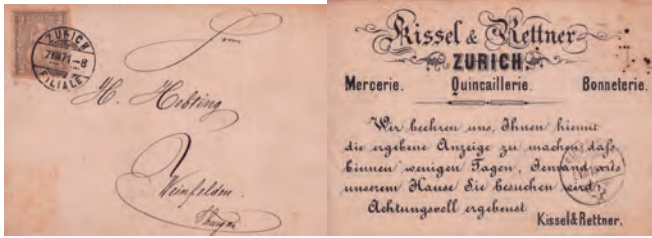 ZURICH
7 VIII 71 – 8
FILIALE
H. Hebting
Weinfelden.
Thurgau
Kissel & Rettner
ZURICH.
Mercerie. Quincaillerie. Bonneterie.
Wir beehren uns, Ihnen hiemit
die ergebene Anzeige zu machen daß
binnen wenigen Tagen, Jemand aus
unserem Hause Sie besuchen wird.
Achtungsvoll ergebenst
Kissel & Rettner.